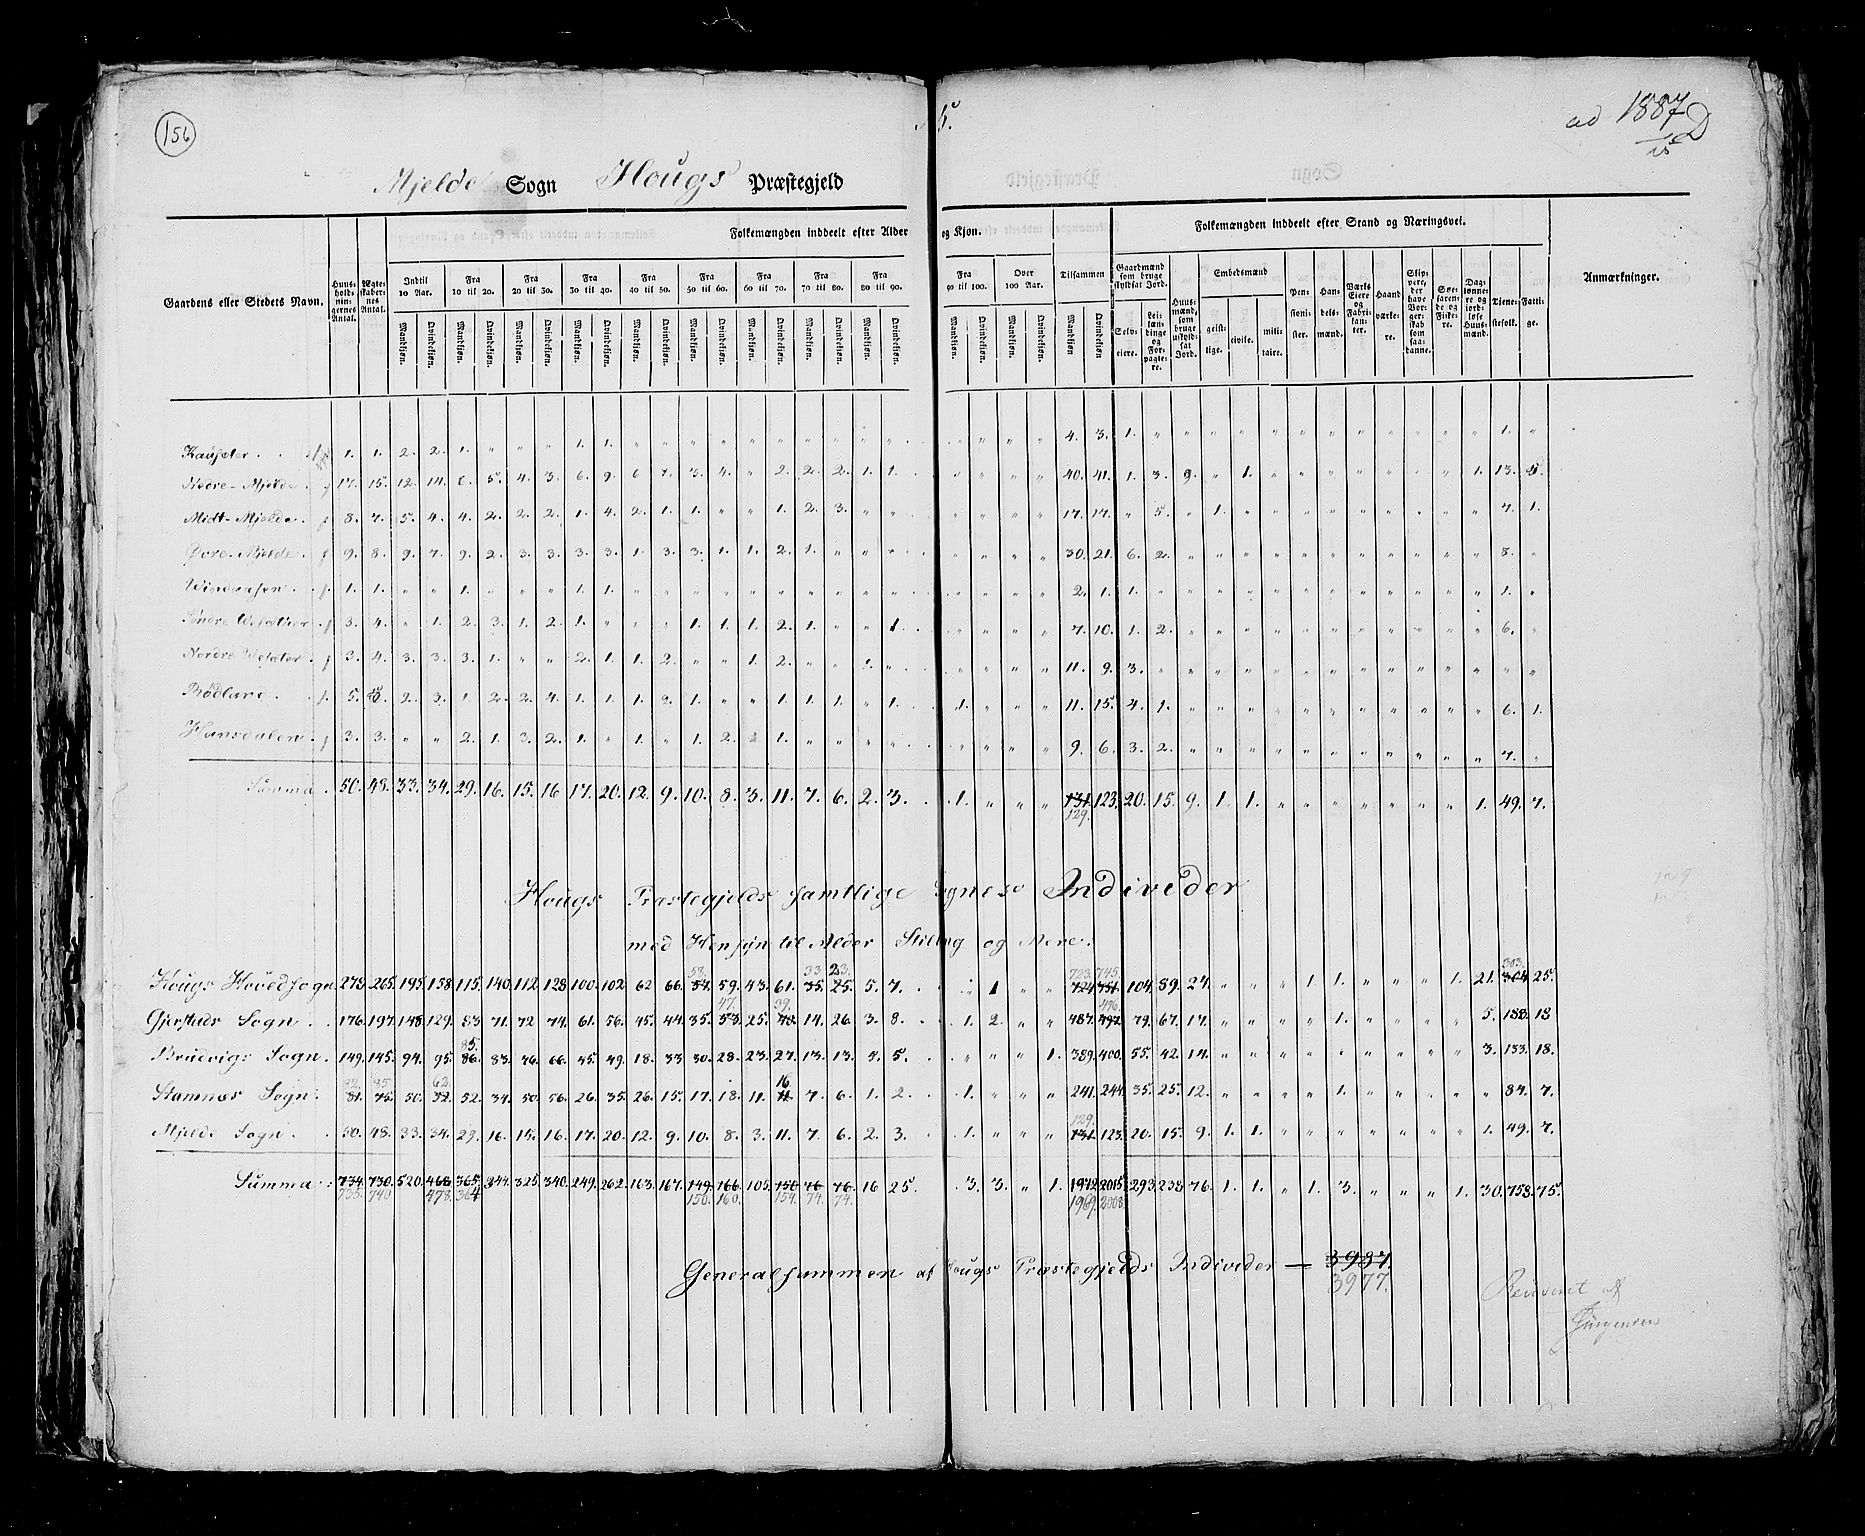 156
5.
ad 1887 D
Mjelde Sogn Hougs Præstegjeld
Gaardens eller Stedets Navn. Huusholdningernes Antal. Ægteskabernes Antal. Folkemængden inddeelt efter Alder og Kjøn. Tilsammen Folkemængden inddeelt efter Stand og Næringsvei. Anmærkninger.
Indtil 10 Aar. Fra 10 til 20. Fra 20 til 30. Fra 30 til 40. Fra 40 til 50. Fra 50 til 60. Fra 60 til 70. Fra 70 til 80. Fra 80 til 90. Fra 90 til 100. Over 100 Aar.
Mandkjøn. Qvindekjøn. Mandkjøn. Qvindekjøn. Mandkjøn. Qvindekjøn. Mandkjøn. Qvindekjøn. Mandkjøn. Qvindekjøn. Mandkjøn. Qvindekjøn. Mandkjøn. Qvindekjøn. Mandkjøn. Qvindekjøn. Mandkjøn. Qvindekjøn. Mandkjøn. Qvindekjøn. Mandkjøn. Qvindekjøn. Mandkjøn Qvindekjøn.
Gaardmænd som bruge skyldsat Jord. Selveiere. Leilændinge og Forpagtere. Huusmænd, som bruge uskyldsat Jord. Embedsmænd geistlige. civile. militaire. Pensionister. Handelsmænd. Værks Eiere og Fabrikanter. Haandværkere. Skippere, der have Borgerskab som saadanne. Søefarende og Fiskere. Daglønnere og jordløse Huusmænd. Tjenestefolk. Fattige.
Kauseter . . 1. 1. 2. 2. 1. " " " 1. 1. " " " " " " " " " " " " " " 4. 3. 1. " " " " " " " " " " " " 1. "
Nedre-Mjelde . 17. 15. 12. 14. 6. 5. 4. 3. 6. 9. 6 7. 3. 4. " 2. 2. 2. 1. 1. " " " " 40. 41. 1. 3. 9. " 1. " " " " " " " 1. 13.
Midt-Mjelde . 8. 7. 5. 4. 4. 2. 2. 2. 1. 4. 2. 1. 1. " " 1. 2. 3. " " " " " " 17. 17. " 5. " 1. " " " " " " " " " 7. 1.
Øvre-Mjelde . 9. 8. 9. 7. 9. 2. 3. 3. 3. 3. 1. 3. 3. 1. 1. 2. 1. " " " " " " " 30. 21. 6. 2. " " " " " " " " " " " 8. "
1. 1. " " 1. " " " 1. 1. " " " " " " " " " " " " " " 2. 1. 1. " " " " " " " " " " " " 1. "
Søndre 3. 4. " 1. 2. 3. 1. 2. 1. " " " 1. 1. 1. 2. 1. " " 1. " " " " 7. 10. 1. 2. " " " " " " " " " " " 6. "
Nordre 3. 4. 3. 3. 3. 1. " " 2. 1. 1. 2. " " 1. 2. " " 1. " " " " " 11. 9. 3. " " " " " " " " " " " " " "
5. 2. 3. 1. 2. 2. 4. 1. 1. 1. 2. 1. " " 1. 1. 1. " 1. 1. " " " 11. 15. 4. 1. " " " " " " " " " " " 6. 1.
Hansdalen . 3. 3. " " 2. 1. 3. 2. 1. " 1. " 1. 2. 2 1. " " " " " " " " 9. 6. 3. 2. " " " " " " " " " " " 7. "
Summa . 50. 48. 33. 34. 29. 16. 15. 16 17. 20. 12. 9. 10. 8. 3. 11. 7. 6. 2. 3. 1. " " " 131. 123. 20. 15. 9. 1. 1. " " " " " " " 1. 49. 7.
129.
Hougs Præstegjelds samtlige Sognes Individer
med Hensyn til Alder Stilling og Mere.
58. 33. 23. 723. 745. 303.
Hougs Hovedsogn 278. 265. 195. 158. 115. 140. 112. 128 100. 102 62 66. 57. 59. 43. 61. 35. 25. 5. 7. " 1 " " 724 751. 104. 89. 24. " " " 1. 1. " " " 1. 21. 304 25.
47. 39. 496.
Gjersteds Sogn . . 176. 197. 148. 129. 83 71. 72 74. 61. 56. 45. 44. 35. 53. 25. 40. 14. 26. 3. 8. 1. 2. " " 487. 497. 79. 67. 17. " " " " 1. " " " " 5. 188. 18
85.
Brudvigs Sogn. 149. 145. 94. 95. 86. 83. 76. 66. 45. 49. 18. 33. 30. 28. 23. 27. 13. 13. 7. 5. " " " 1. 389. 400. 55. 42. 14. " " " " " " " " " 3. 133. 18.
82. 85. 62. 16.
Stamnes Sogn. 81. 75. 50. 52. 52. 34. 50. 56. 26. 35. 26. 15. 17. 18. 11. 11. 7. 6. 1. 2. 1. " " " 241. 244. 35. 25. 12. " " " " 1. " " " " " 84. 7.
129.
Mjelde Sogn. . 50. 48. 33. 34. 29. 16. 15. 16. 17. 20. 12. 9. 10. 8. 3. 11. 7. 6. 2. 3. 1. " " " 131. 123. 20. 15. 9. 1. 1. " " " " " " " 1. 49. 7.
Summa : 734. 730. 520. 468. 365. 344. 325. 340. 249. 262. 163. 167. 149. 166. 105. 150. 76. 76. 16 25. 3. 3. " 1. 1972. 2015. 293. 238. 76. 1. 1. " 1. 3. " " " 1. 30. 758. 75.
735. 740 478. 364 150. 160. 154. 74. 74. 1969. 2008.
Generalsummen af Hougs Præstegjelds Individer — 3987.
3977.
Revideret af
Jürgensen